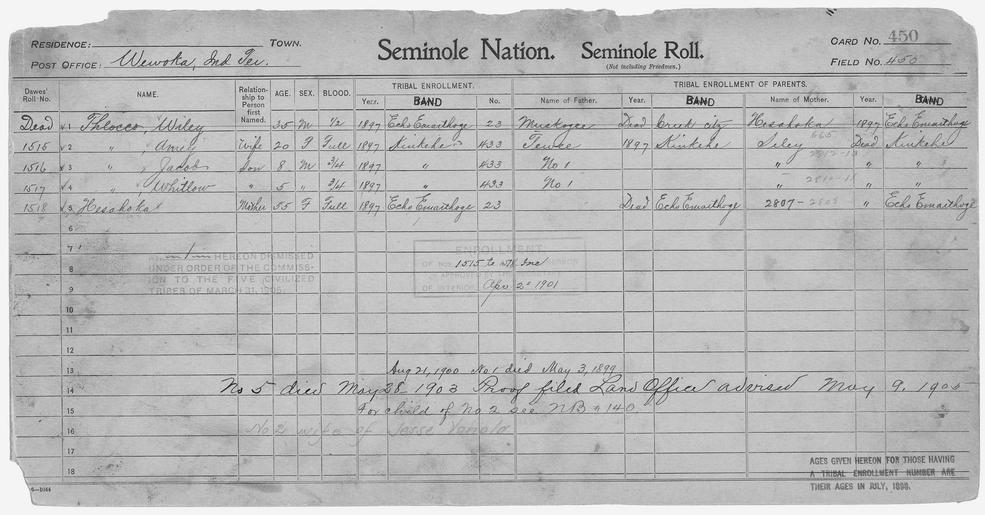 RESIDENCE: TOWN. Seminole Nation. Seminole Roll. CARD NO. 450
POST OFFICE: Wewoka, Ind Ter. (Not including Freedmen.) FIELD NO. 450
Dawes' Roll No. NAME. Relationship to Person first Named. AGE. SEX. BLOOD. TRIBAL ENROLLMENT. TRIBAL ENROLLMENT OF PARENTS.
Year. BAND No. Name of Father. Year. BAND Name of Mother. Year. BAND
Dead 1 Thlocco, Wiley 35 M 1/2 1897 Echo Emarthoge 23 Muskogee Dead Creek city Hesahoka 1897 Echo Emarthoge
1515 2 " Amey Wife 20 F Full 1897 Ninkehe 433 1897 Ninkehe Liley 665 Dead Ninkehe
1516 3 " Jacob Son 8 M 3/4 1897 " 433 No 1 " " "
1517 4 " Whitlow " 5 " 3/4 1897 " 433 No 1 " " "
1518 5 Hesahoka Mother 55 F Full 1897 Echo Emarthoge 23 Dead Echo Emarthoge 2807- " Echo Emarthoge
6
7
No. 1 HEREON DISMISSED
UNDER ORDER OF THE COMMIS-
SION TO THE FIVE CIVILIZED
TRIBES OF MARCH 31, 1905.
ENROLLMENT
OF NOS. 1515 to 1518 Inc HEREON
APPROVED BY THE SECRETARY
OF INTERIOR Apr 2d 1901
8
9
10
11
12
13 Aug 21, 1900 No 1 died May 3, 1899
14 No 5 died May 28 1903 Proof filed Land Office advised May 9, 1906
15 For child of No 2 see NB # 140.
16 No 2 wife of Jesse
17
18
AGES GIVEN HEREON FOR THOSE HAVING
A TRIBAL ENROLLMENT NUMBER ARE
THEIR AGES IN JULY, 1898.